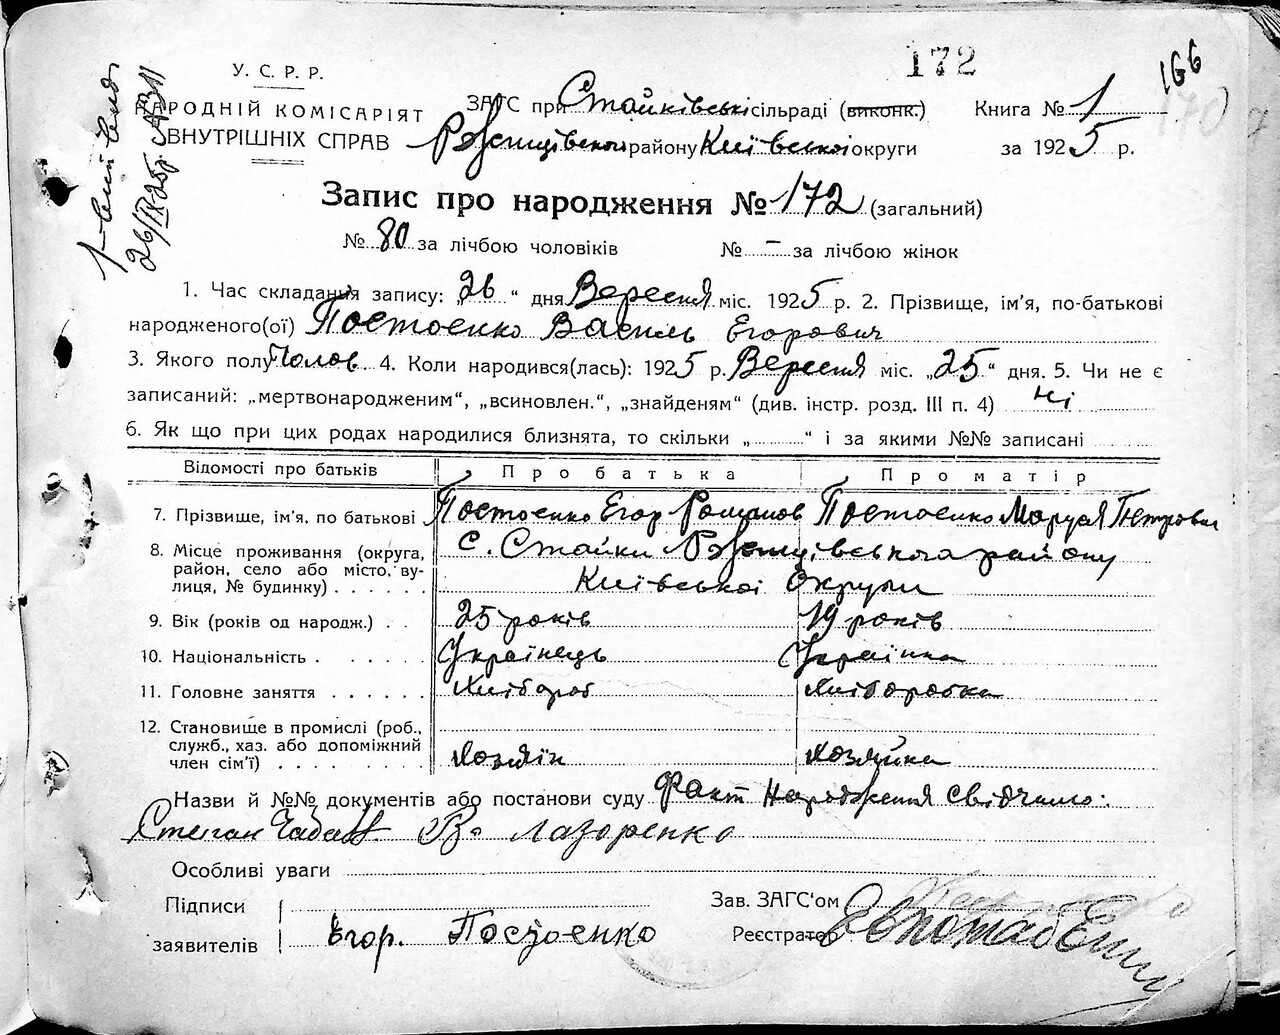 172
166
170
У. С. Р. Р.
НАРОДНІЙ КОМІСАРІЯТ
ВНУТРІШНІХ СПРАВ
26/IX-25р. №
ЗАГС при Стайківські сільраді (виконк.) Книга № 1
району Київської округи за 1925 р.
Запис про народження № 172 (загальний)
№ 80 за лічбою чоловіків № – за лічбою жінок
1. Час складання запису: „26“ дня Вересня міс. 1925 р. 2. Прізвище, ім’я, по-батькові
народженого(ої) Постоенко Василь Егорович
3. Якого полу Чолов 4. Коли народився(лась): 1925 р. Вересня міс. „25“ дня. 5. Чи не є
записаний: „мертвонародженим“, „всиновлен.“, „знайденям“ (див. інстр. розд. III п. 4) Ні
6. Як що при цих родах народилися близнята, то скільки „ “ і за якими №№ записані
Відомості про батьків Про батька Про матір
7. Прізвище, ім’я, по батькові Постоенко Егор Романов Постоенко Маруся Петровн
8. Місце проживання (округа, с. Стайки району
район, село або місто, ву-
лиця, № будинку) Київської Округи
9. Вік (років од народж.) 25 років 19 років
10. Національність Українець Українка
11. Головне заняття Хлібороб Хлiборобка
12. Становище в промислі (роб.,
служб., хаз. або допоміжний
член сім’ї) Хозяїн Хозяйка
Назви й №№ документів або постанови суду Факт Народження свідчимо:
Степан Чабан В. Лазоренко
Особливі уваги
Підписи Зав. ЗАГС‘ом
заявителів Егор. Постоенко Реєстратор